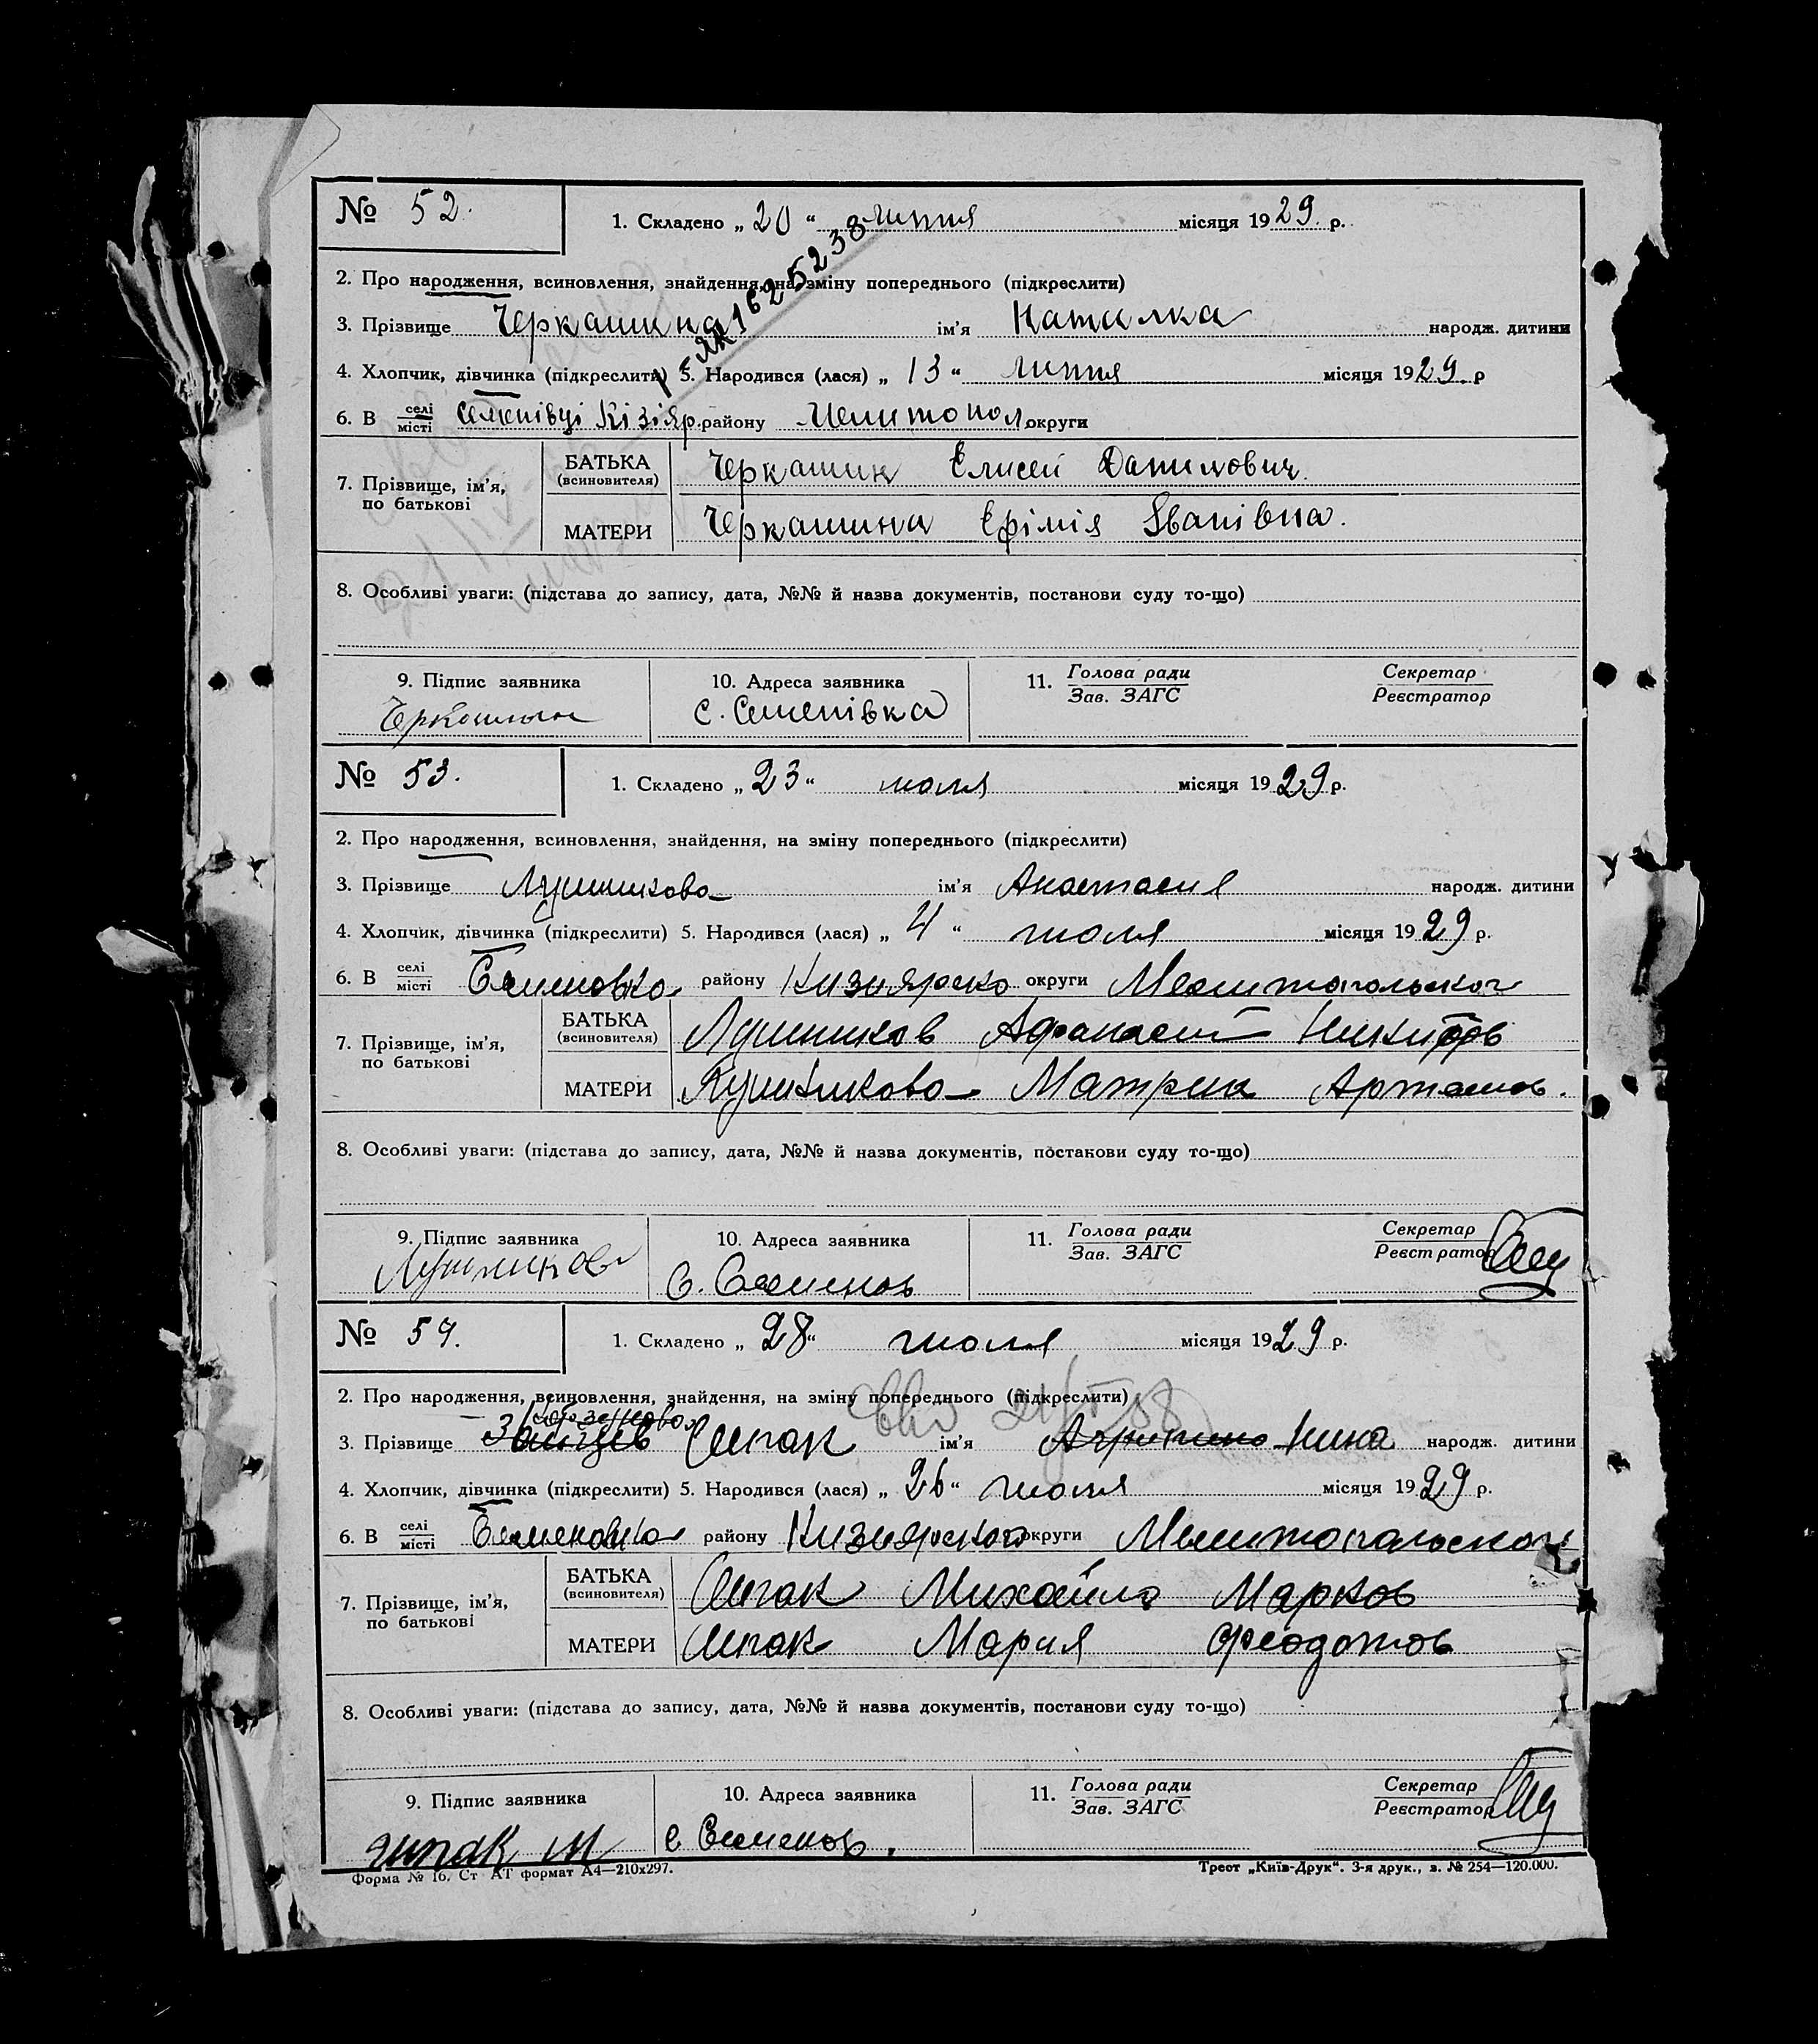 № 52. 1. Складено „ 20 “ липня місяця 1929. р.
2. Про народження, всиновлення, знайдення, на зміну попереднього (підкреслити)
3. Прізвище Черкашина ім'я Наталка народж. дитини
4. Хлопчик, дівчинка (підкреслити) 5. Народився (лася) „ 13 “ липня місяця 1929. р
6. В селі місті Семенівці Кізіяр. району Мелитопол. округи
7. Прізвище, ім'я, по батькові
БАТЬКА (всиновителя) Черкашин Елисей Данилович.
МАТЕРИ Черкашина Ефімія Іванівна.
8. Особливі уваги: (підстава до запису, дата, №№ й назва документів, постанови суду то-що)
9. Підпис заявника 10. Адреса заявника 11. Голова ради Зав. ЗАГС Секретар Реєстратор
Черкашин с. Семенівка
№ 53. 1. Складено „ 23 “ июля місяця 1929 р.
2. Про народження, всиновлення, знайдення, на зміну попереднього (підкреслити)
3. Прізвище Лушникова ім'я Анастасия народж. дитини
4. Хлопчик, дівчинка (підкреслити) 5. Народився (лася) „ 4 “ июля місяця 1929 р.
6. В селі місті Семеновка району Кизиярско округи Мелитопольской
7. Прізвище, ім'я, по батькові
БАТЬКА (всиновителя) Лушников Афанасий
МАТЕРИ Лушникова Артамов.
8. Особливі уваги: (підстава до запису, дата, №№ й назва документів, постанови суду то-що)
9. Підпис заявника 10. Адреса заявника 11. Голова ради Зав. ЗАГС Секретар Реєстратор
Лушников С. Семенов
№ 54. 1. Складено „ 28 “ июля місяця 1929 р.
2. Про народження, всиновлення, знайдення, на зміну попереднього (підкреслити)
3. Прізвище Шпак ім'я Нина народж. дитини
4. Хлопчик, дівчинка (підкреслити) 5. Народився (лася) „ 26 “ июля місяця 1929 р.
6. В селі місті Семеновка району Кизиярского округи Мелитопольской
7. Прізвище, ім'я, по батькові
БАТЬКА (всиновителя) Шпак Михаил Марков
МАТЕРИ Шпак Мария Феодотов
8. Особливі уваги: (підстава до запису, дата, №№ й назва документів, постанови суду то-що)
9. Підпис заявника 10. Адреса заявника 11. Голова ради Зав. ЗАГС Секретар Реєстратор
шпак м с Семенов.
Форма № 16. Ст АТ формат А4—210х297. Трест „Київ-Друк“. 3-я друк., з. № 254—120.000.